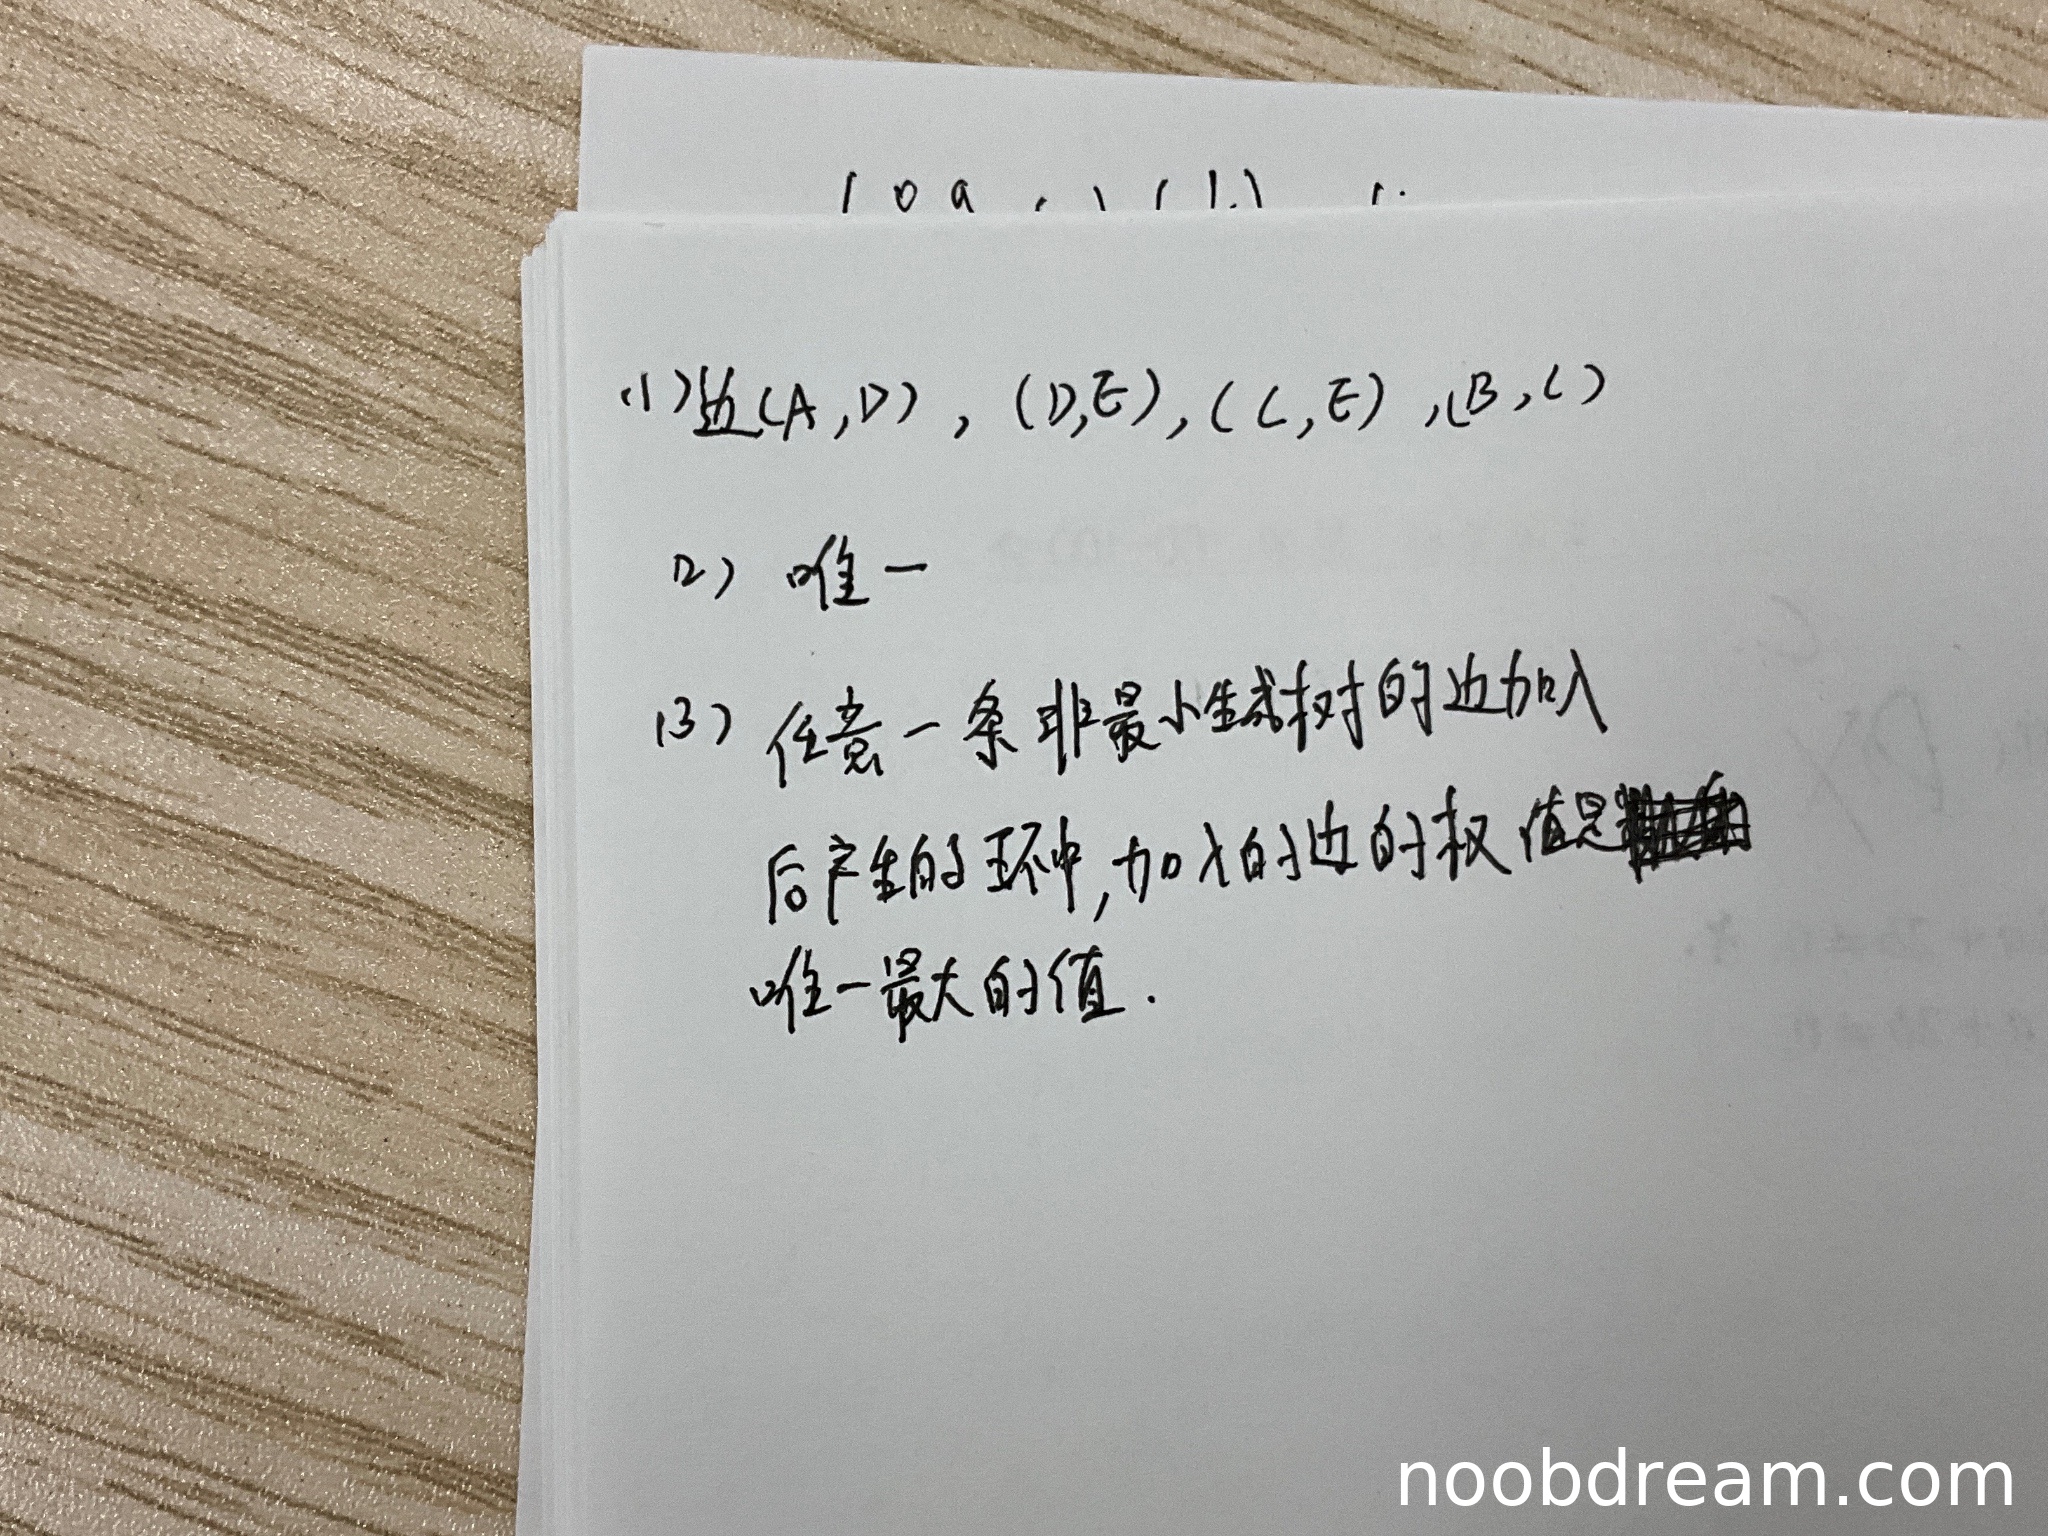 (1)边(A,D),(D,E),(C,E),(B,C)
(2) 唯一
(3) 任意一条非最小生成树的边加入
后产生的环中,加入的边的权值是
唯一最大的值.
noobdream.com